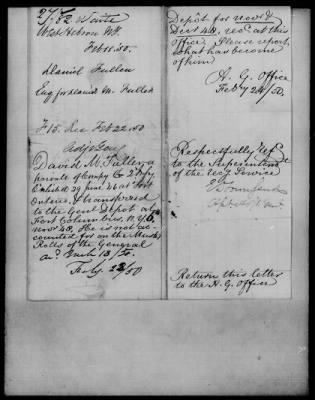 West Hebron N.Y.
Feb 11. 50.
Daniel Fuller
Enq. for David M. Fuller
F 15. Rec Feb 22. 50
David M. Fuller, a
private of Compy C 2 Infy
Enlisted 29 June 46 at Fort
Ontario, & transferred
to the Genl Depot at
Fort Columbus, N.Y. in
Nov 48. He is not ac-
counted for on the Muster
Rolls of the General
Feby 23/50
Depôt for Nov &
Decr 48, recd at this
Office. Please report,
what has become
of him
A. G. Office
Feby 24/50.
Respectfully ref
to the Superintendt
of the Recg Service
E. D. Townsend
Return this letter
to the A. G. Office